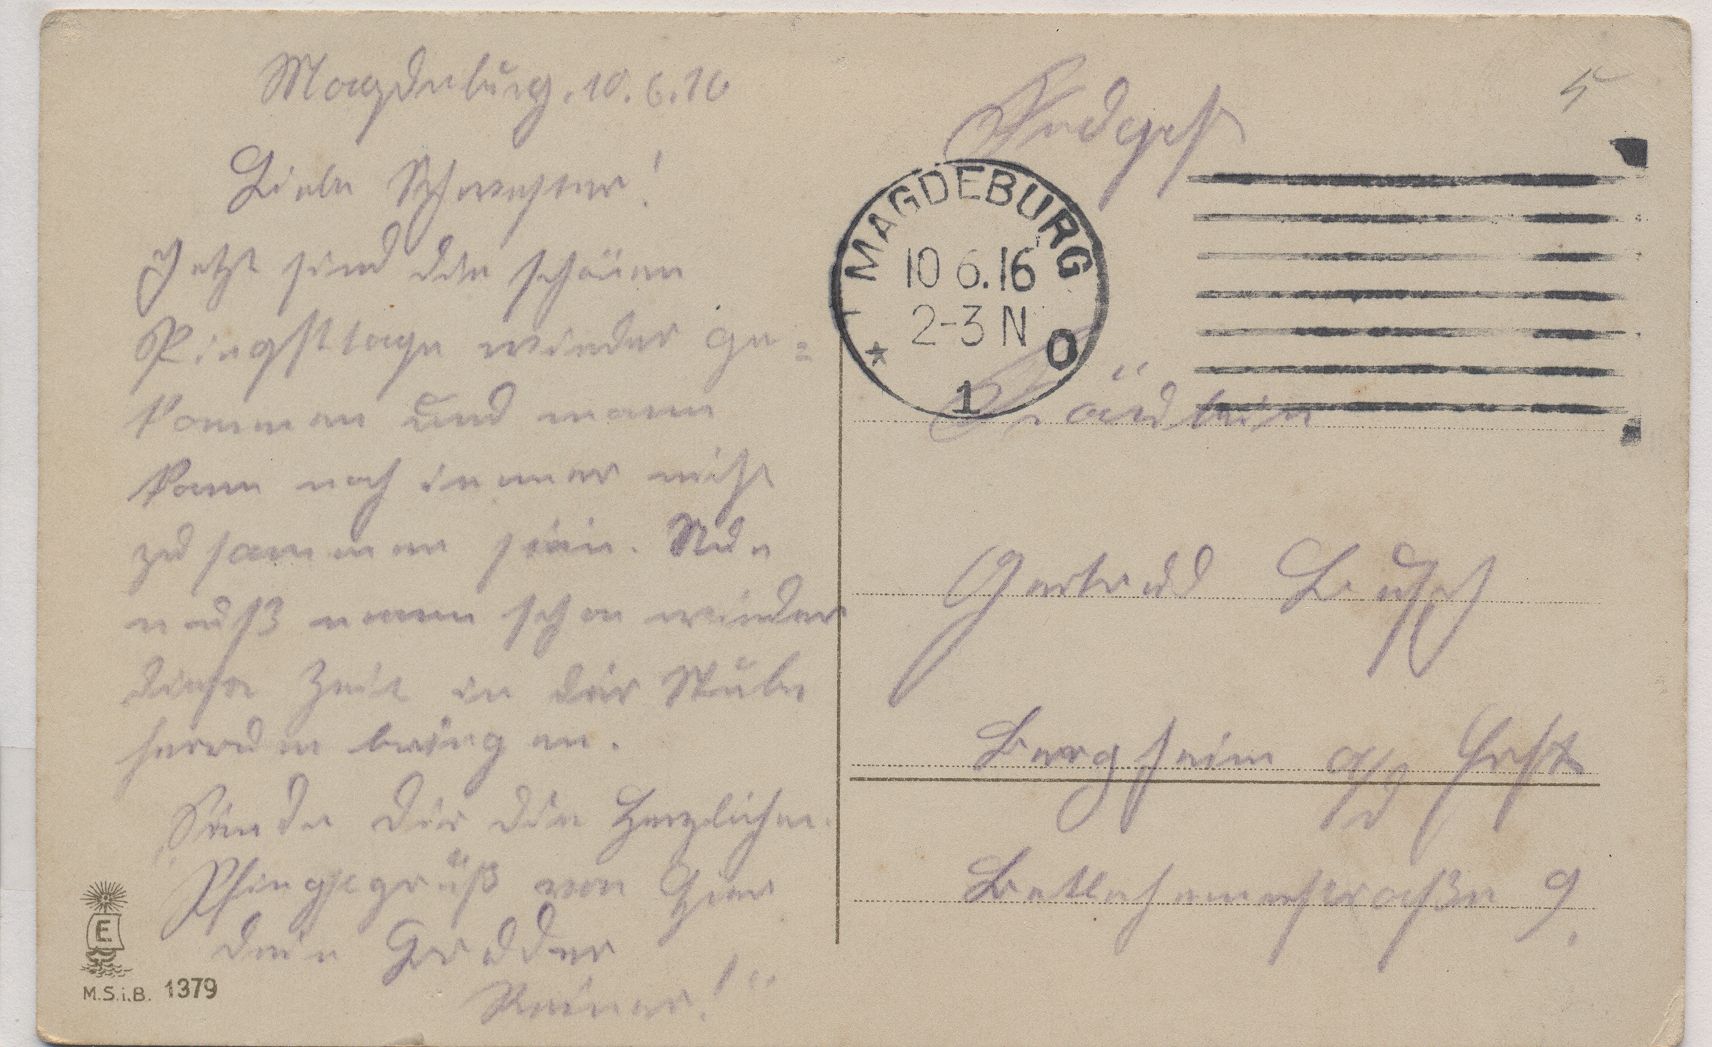 Magdeburg. 10.6.16
Liebe Schwester!
Jetzt sind die schönen
Pingsttage wieder ge=
kommen und mann
kann noch immer nicht
zusammen sein. Nun
muß mann schon wieder
diese Zeit in der Stube
herrum bringen.
Sende dir die Herzlichen
Pfingsgrüß von hier
dein Bruder
Reiner!
Feldpost
MAGDEBURG
10 6.16
2-3 N
* 1 O
Fräulein
Gertrud Busch
Bergheim a/d Erft
Betlehemerstraße 9.
5
E
M.S.i.B. 1379